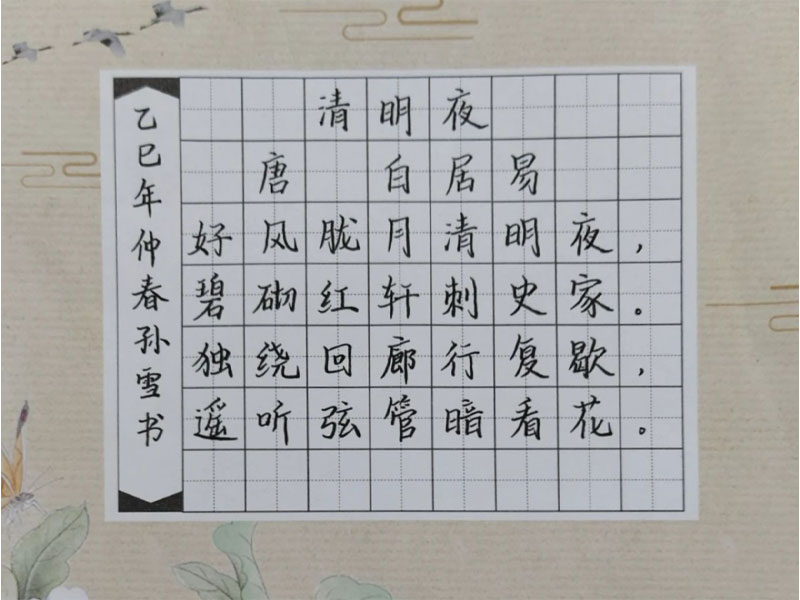 清明夜
唐 白居易
好风胧月清明夜，
碧砌红轩刺史家。
独绕回廊行复歇，
遥听弦管暗看花。
乙巳年仲春孙雪书